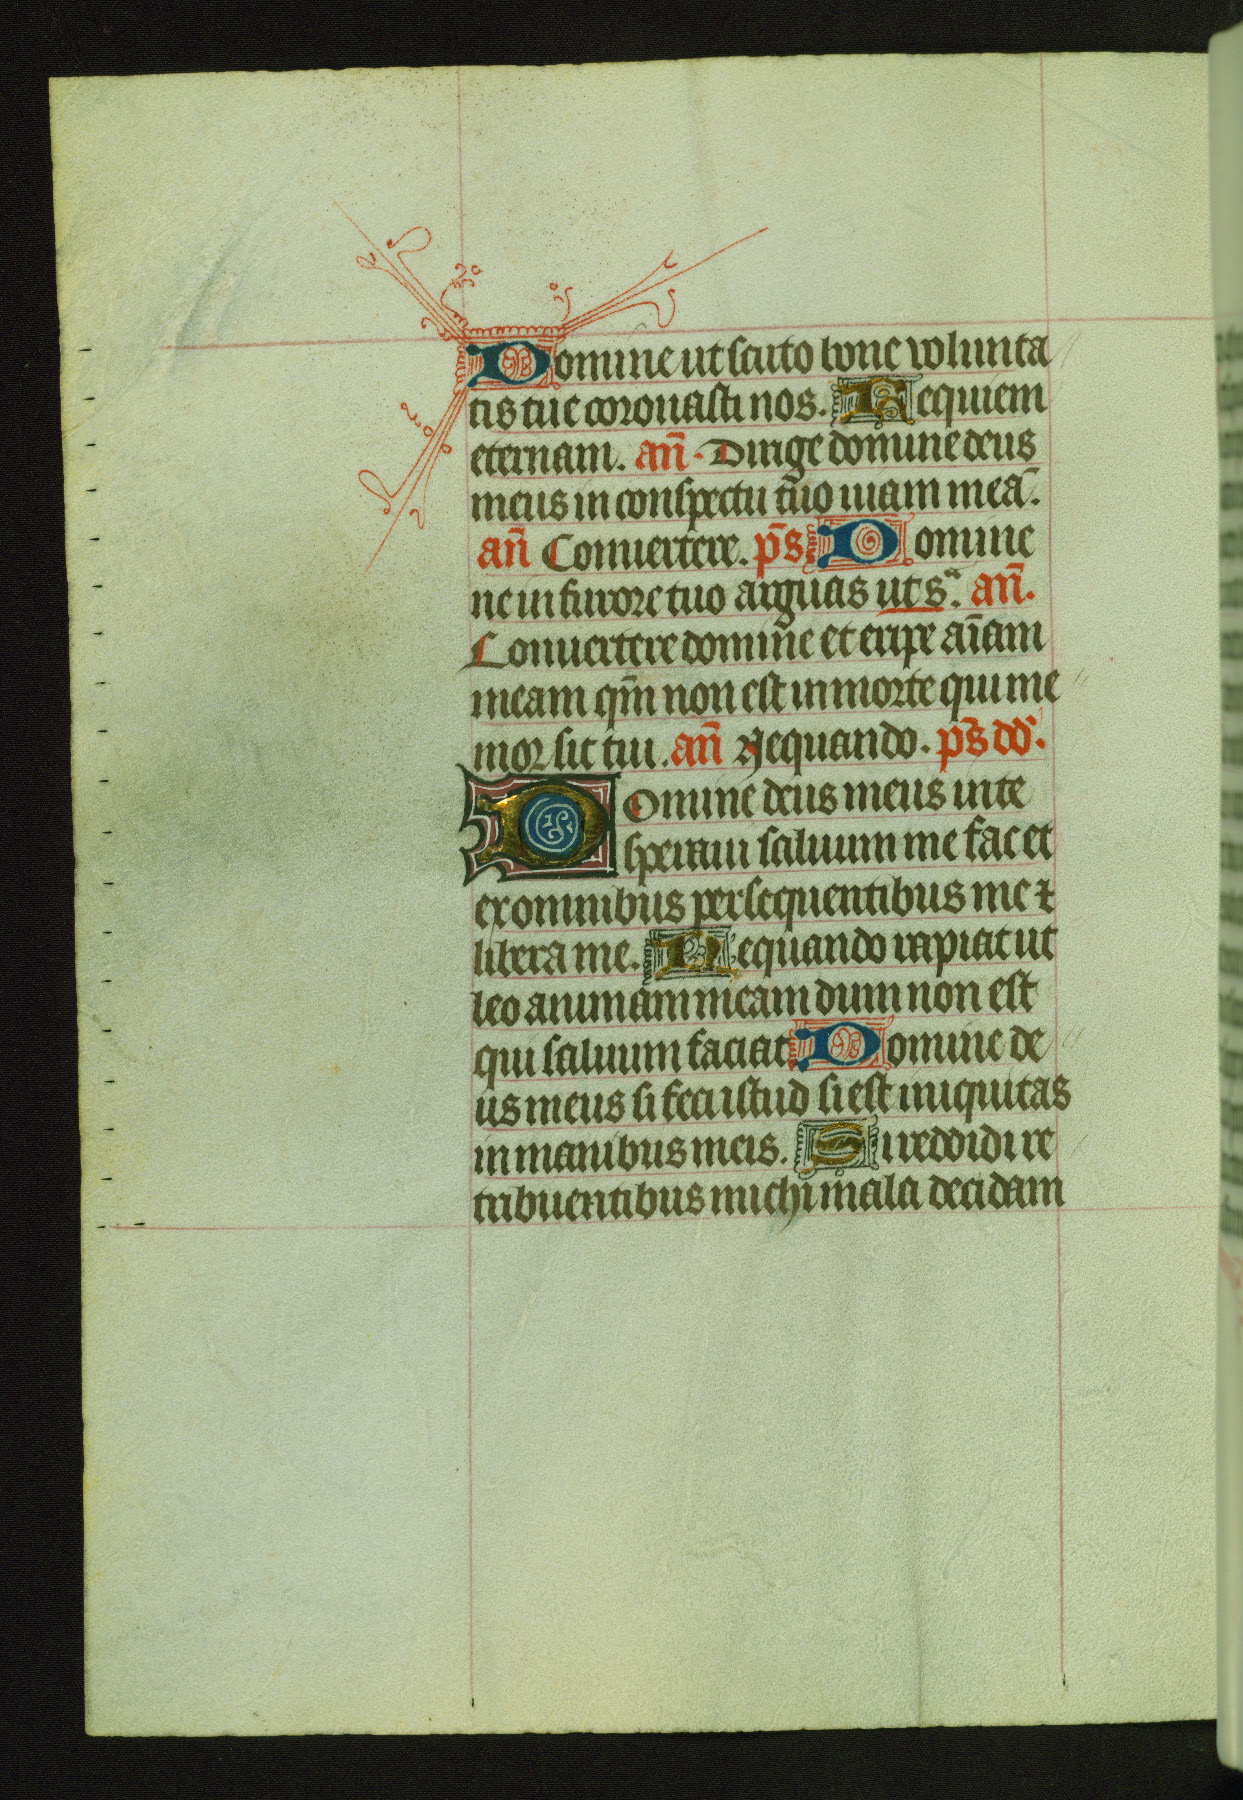 Domine ut scuto bone volunta
tis tue coronasti nos. Requiem
eternam. an̄. Dirige domine deus
meus in conspectu tuo uiam mea̅.
an̄ Conuertere. ps̄ Domine
ne in furore tuo arguas ut sᵃ. an̄.
Conuertere domine et eripe ai̅am
meam qm̅ non est in morte qui me
mor sit tui. an̄ Nequando. ps̄ dd̄.
Domine deus meus in te
speraui saluum me fac et
ex omnibus persequentibus me ⁊
libera me. Nequando rapiat ut
leo animam meam dum non est
qui saluum faciat Domine de
us meus si feci istud si est iniquitas
in manibus meis. Si reddidi re
tribuentibus michi mala decidam